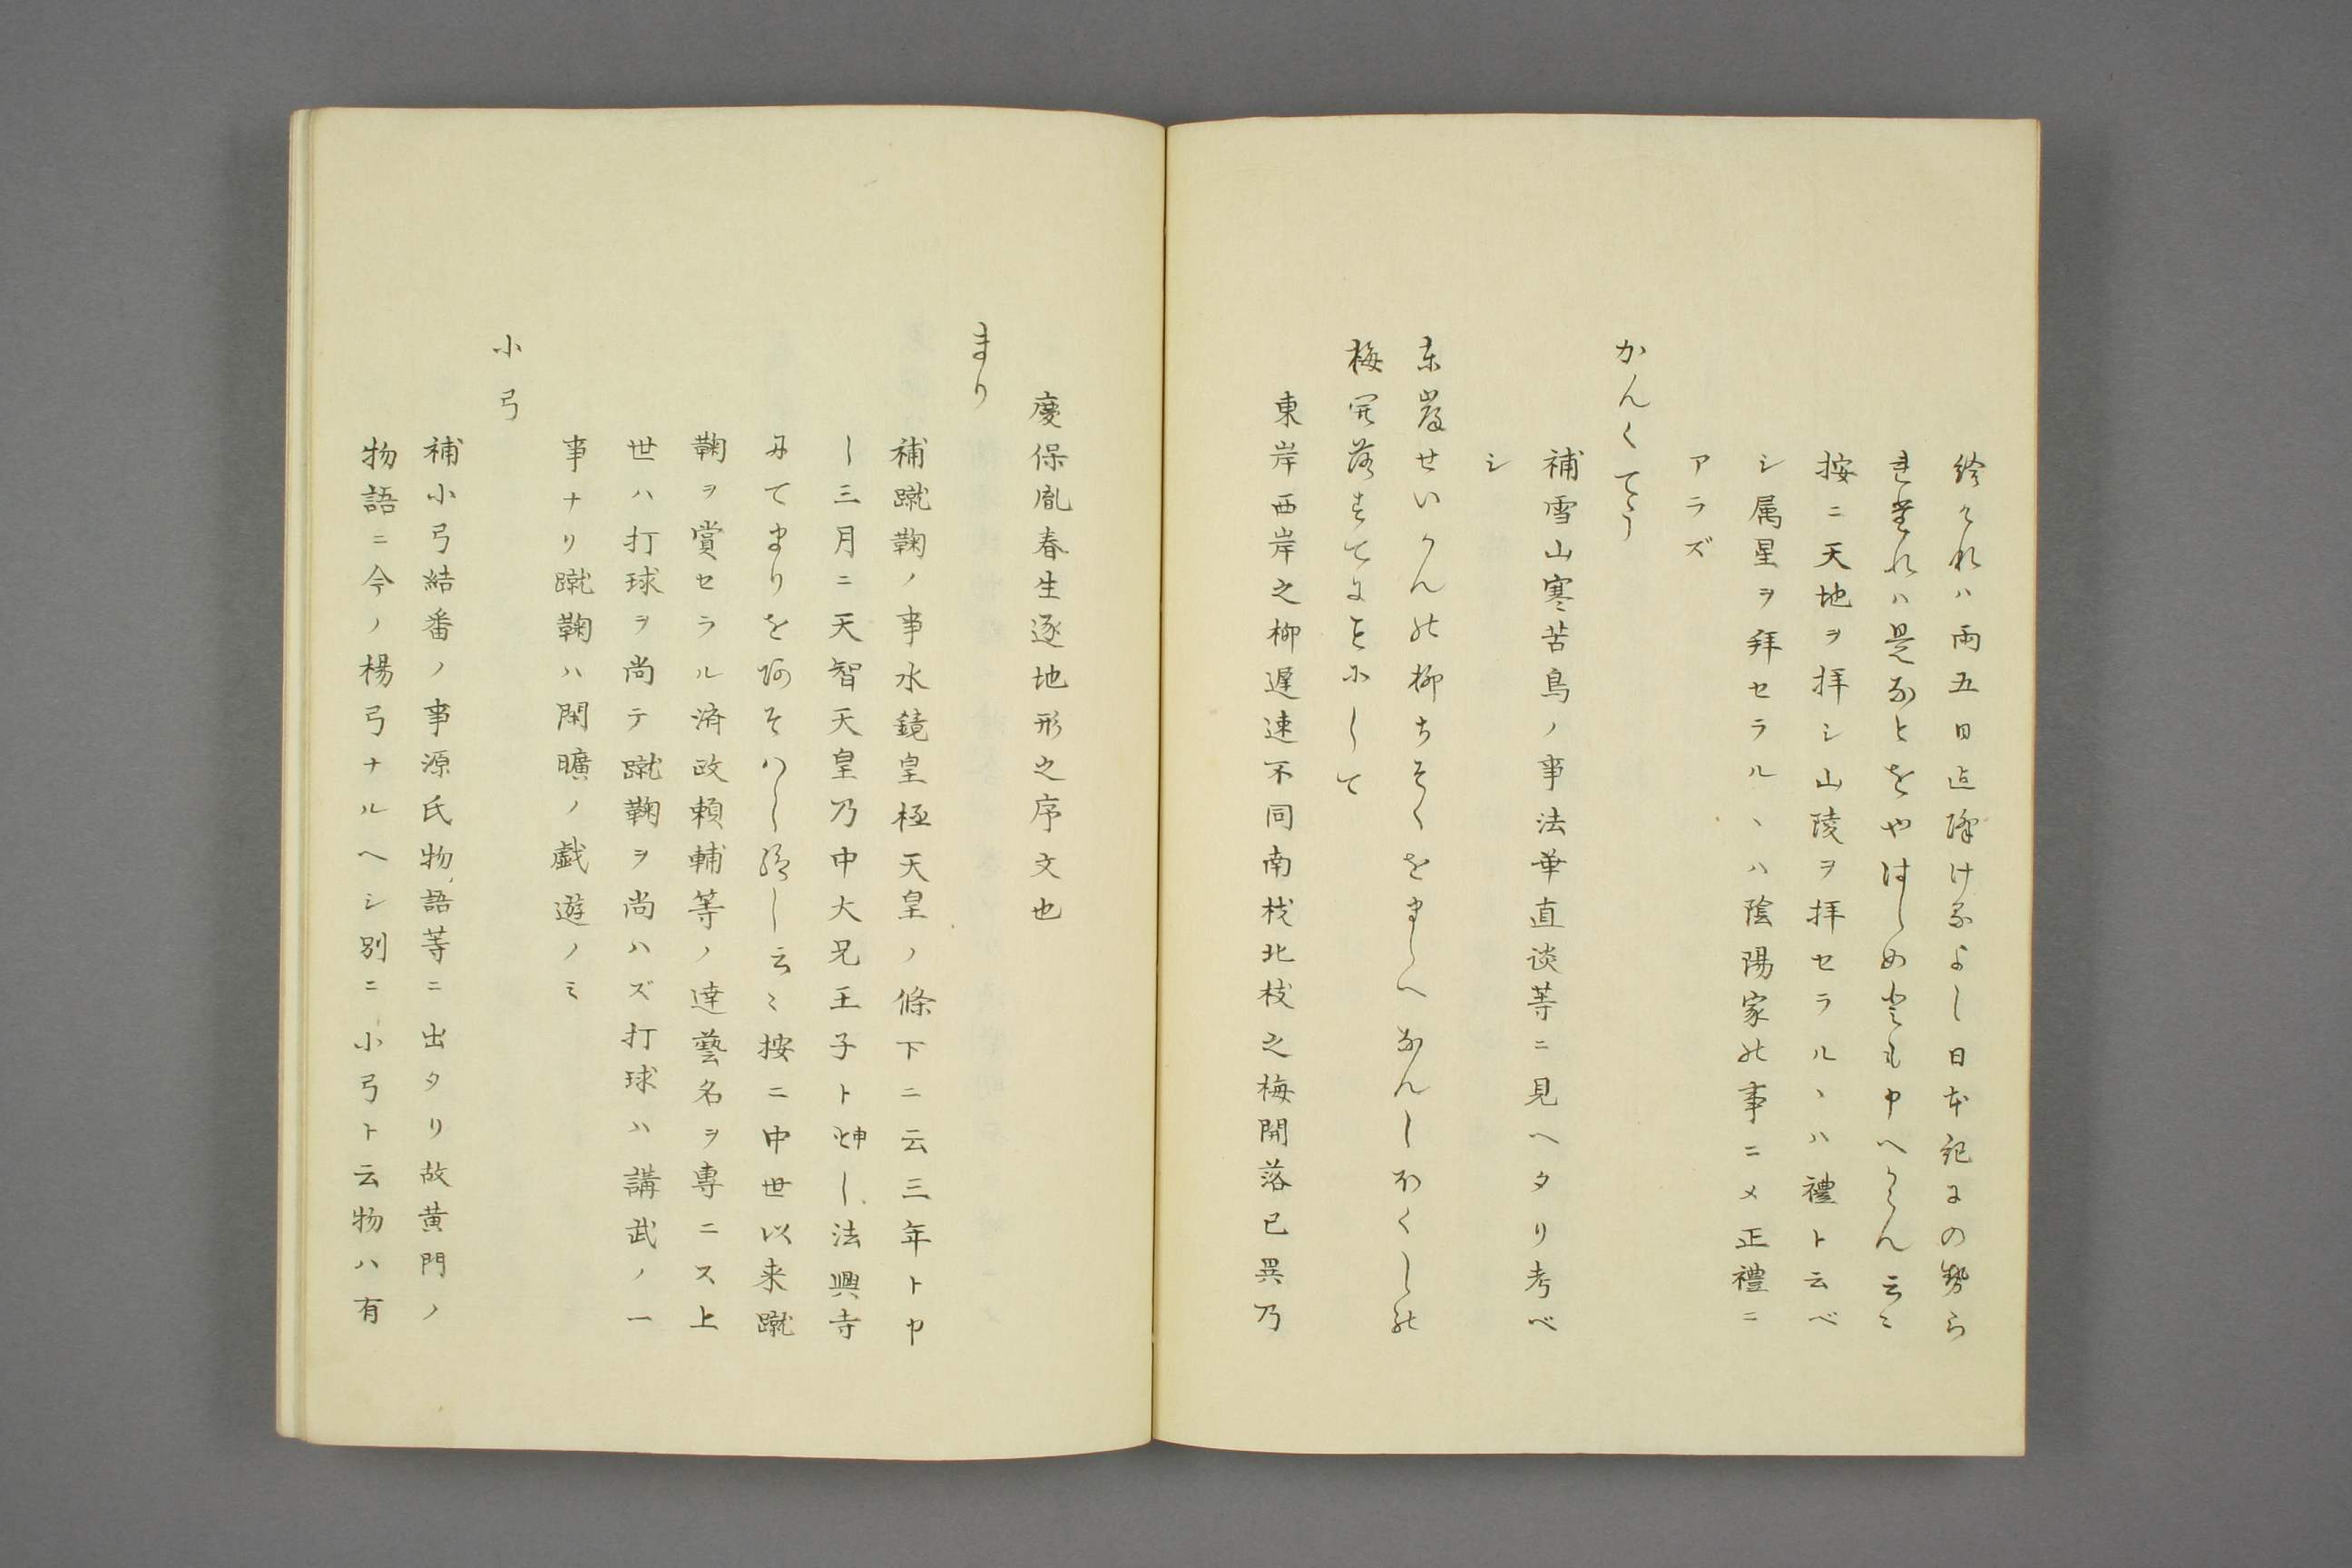 給へれハ雨五日迄降けるよし日本紀にの勢ら
れ堂れハ是なとをやはしめ登も申へからん云〻
按ニ天地ヲ拝シ山陵ヲ拝セラルヽハ禮ト云ベ
シ属星ヲ拜セラルヽハ陰陽家能事ニメ正禮ニ
アラズ
かんくてう
補雪山寒苦鳥ノ事法華直談等ニ見ヘタリ考ベ
シ
東岸せいかん能柳ちそくをましへなんしほくし能
梅開落すてにことにして
東岸西岸之柳遅速不同南枝北枝之梅開落已異乃
慶保胤春生逐地形之序文也
まり
補蹴鞠ノ事水鏡皇極天皇ノ條下ニ云三年ト申
し三月ニ天智天皇乃中大兄王子ト申し法興寺
にてまりをあそハし給し云〻按ニ中世以来蹴
鞠ヲ賞セラル済政頼輔等ノ達藝名ヲ專ニス上
世ハ打球ヲ尚テ蹴鞠ヲ尚ハズ打球ハ講武ノ一
事ナリ蹴鞠ハ閑曠ノ戯遊ノミ
小弓
補小弓結番ノ事源氏物語等ニ出タリ故黄門ノ
物語ニ今ノ楊弓ナルヘシ別ニ小弓ト云物ハ有